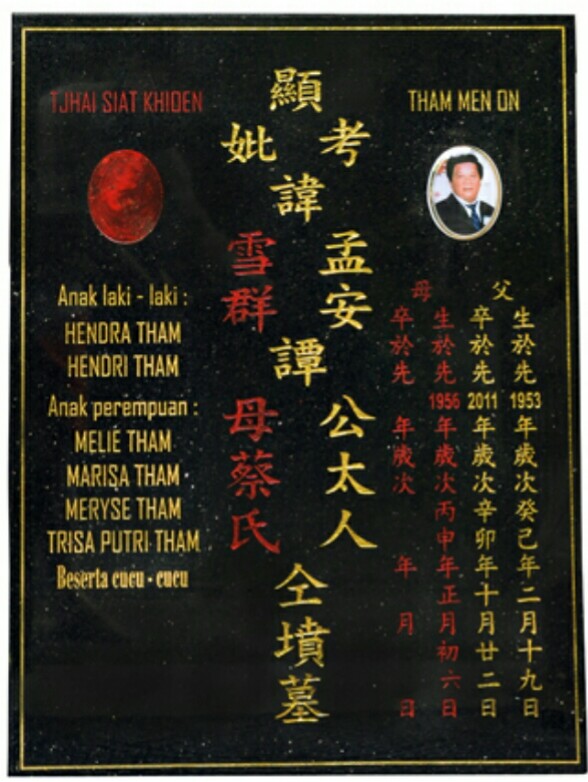 TJHAI SIAT KHIOEN
THAM MEN ON
顯
考
妣
諱
孟安
雪群
譚
公太人
母蔡氏
仝墳墓
父
生於先1953年歲次癸己年二月十九日
卒於先2011年歲次辛卯年十月廿二日
母
生於先1956年歲次丙申年正月初六日
卒於先 年歲次 年 月 日
Anak laki - laki :
HENDRA THAM
HENDRI THAM
Anak perempuan :
MELIE THAM
MARISA THAM
MERYSE THAM
TRISA PUTRI THAM
Beserta cucu - cucu